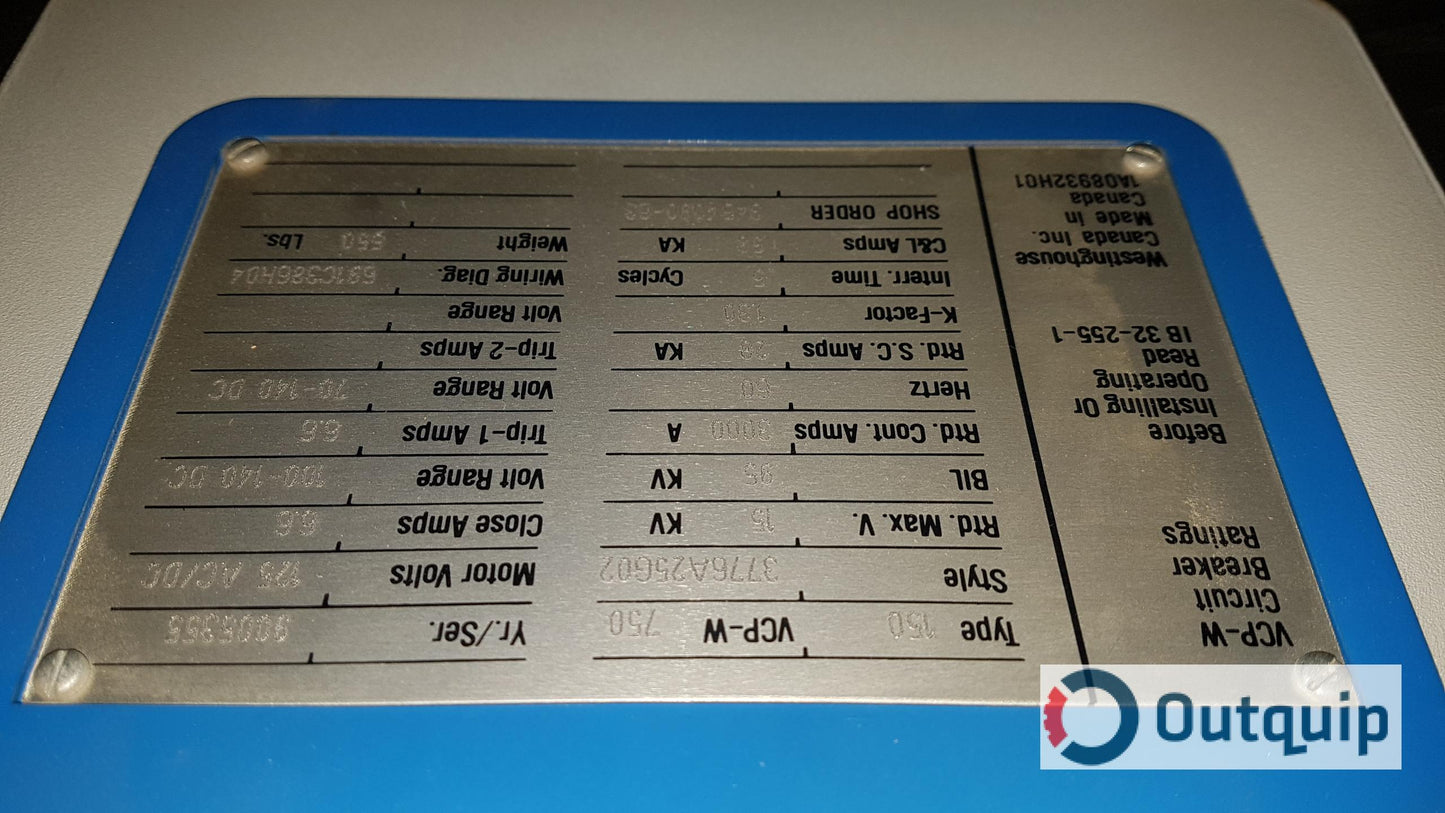 VCP-W
Circuit
Breaker
Ratings
Before
Installing Or
Operating
Read
IB 32-255-1
Westinghouse
Canada Inc.
Made in
Canada
1A08932H01
Type 150 VCP-W 750
Style 3776A25G02
Rtd. Max. V. 15 KV
BIL 95 KV
Rtd. Cont. Amps 3000 A
Hertz 60
Rtd. S.C. Amps KA
K-Factor 1.30
Interr. Time 5 Cycles
C&L Amps KA
SHOP ORDER
Yr./Ser. 9005355
Motor Volts 125 AC/DC
Close Amps 6.6
Volt Range 100-140 DC
Trip-1 Amps 6.6
Volt Range 70-140 DC
Trip-2 Amps
Volt Range
Wiring Diag. 691C386H04
Weight 550 Lbs.
Outquip